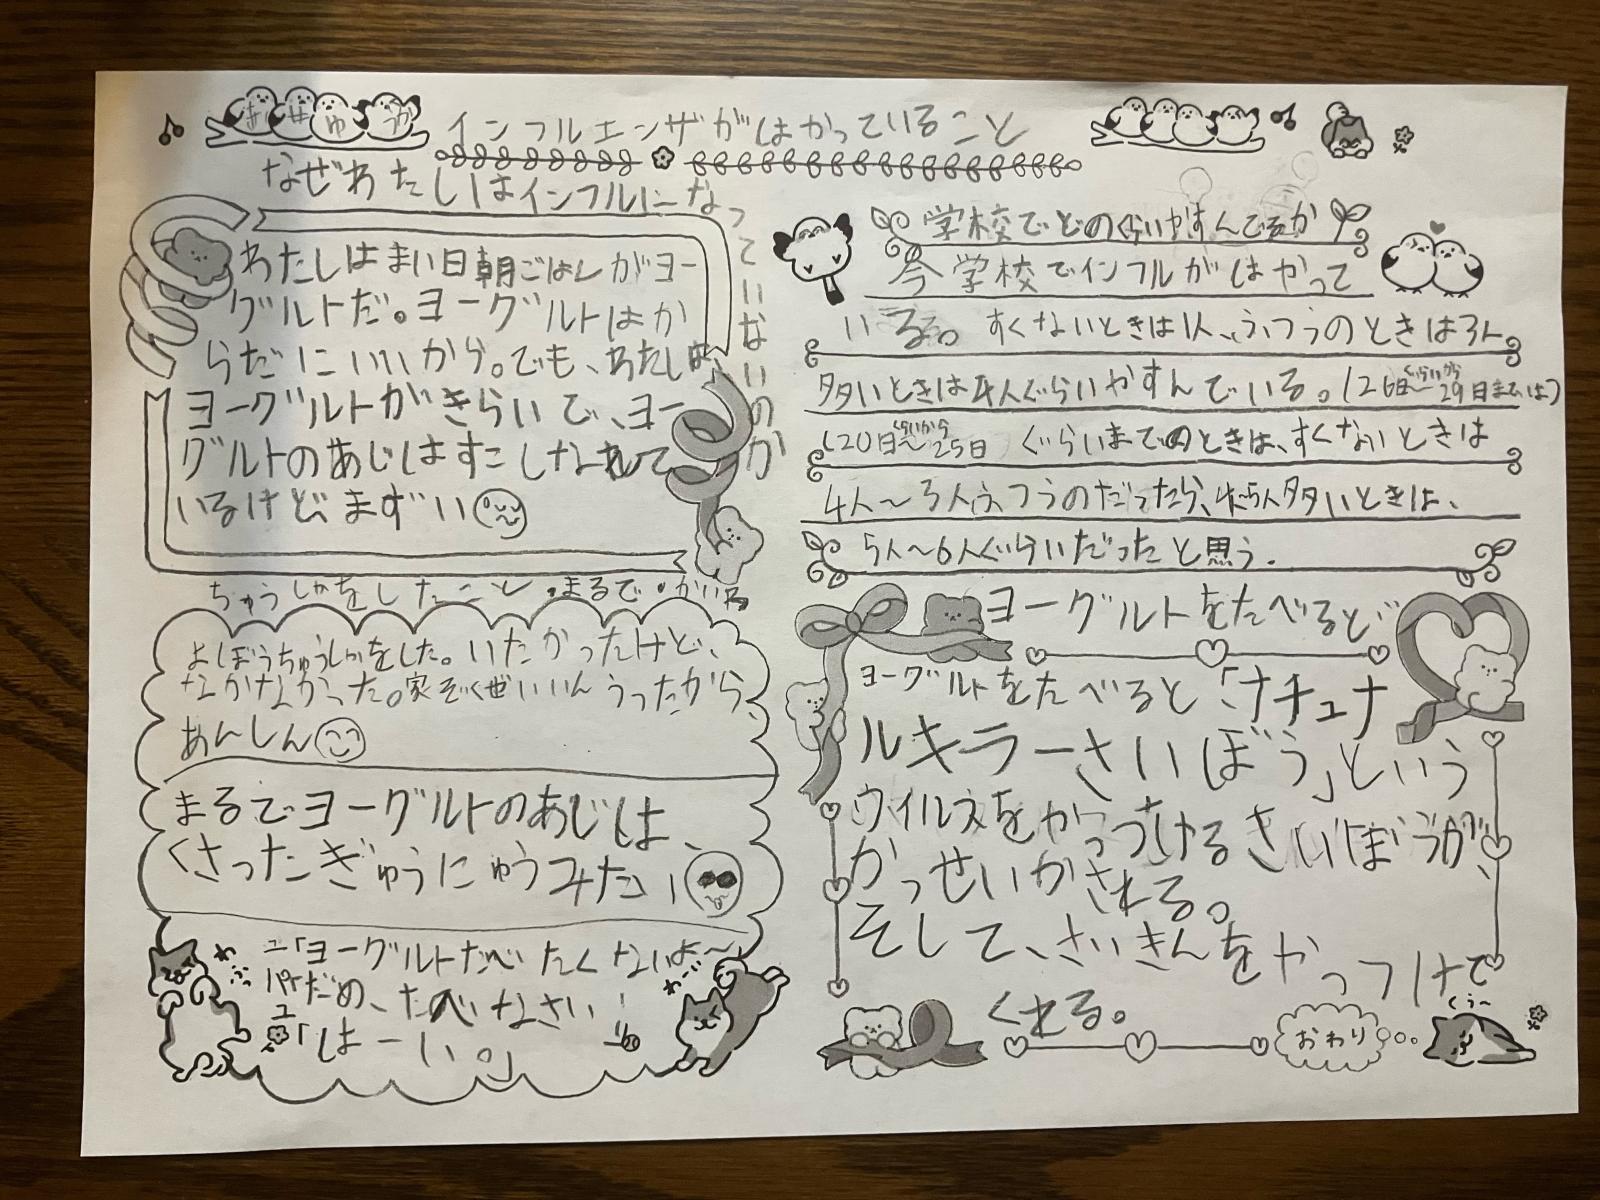 インフルエンザがはかっていること
なぜわたしはインフルになっていないのか
わたしはまい日朝ごはんがヨー
グルトだ。ヨーグルトはか
らだにいいから。でも、わたしは、
ヨーグルトがきらいで、ヨー
グルトのあじはすこしなれて
いるけどまずい
ちゅうしゃをしたこと・まるで・かいわ
よぼうちゅうしゃをした。いたかったけど、
なかなかった。家ぞくぜいいんうったから、
あんしん
まるでヨーグルトのあじは、
くさったぎゅうにゅうみたい
ユ「ヨーグルトたべたくないよ〜
だめ、たべなさい!
ユ「はーい。」
わふぅ
わーい
学校でどのぐらいやすんでるか
今学校でインフルがはやって
いる。すくないときは1人、ふつうのときは3人
多いときは4人ぐらいやすんでいる。(26日ぐらいから〜29日までは)
(20日ぐらいから〜25日ぐらいまでのときは、すくないときは
4人〜3人ふつうのだったら、4〜5人多いときは、
5人〜6人ぐらいだったと思う.
ヨーグルトをたべると
ヨーグルトをたべると「ナチュナ
ルキラーさいぼう」という
ウイルスをやっつけるさいぼうが、
かっせいかされる。
そして、さいきんをやっつけて
くれる。
おわり
くぅ〜